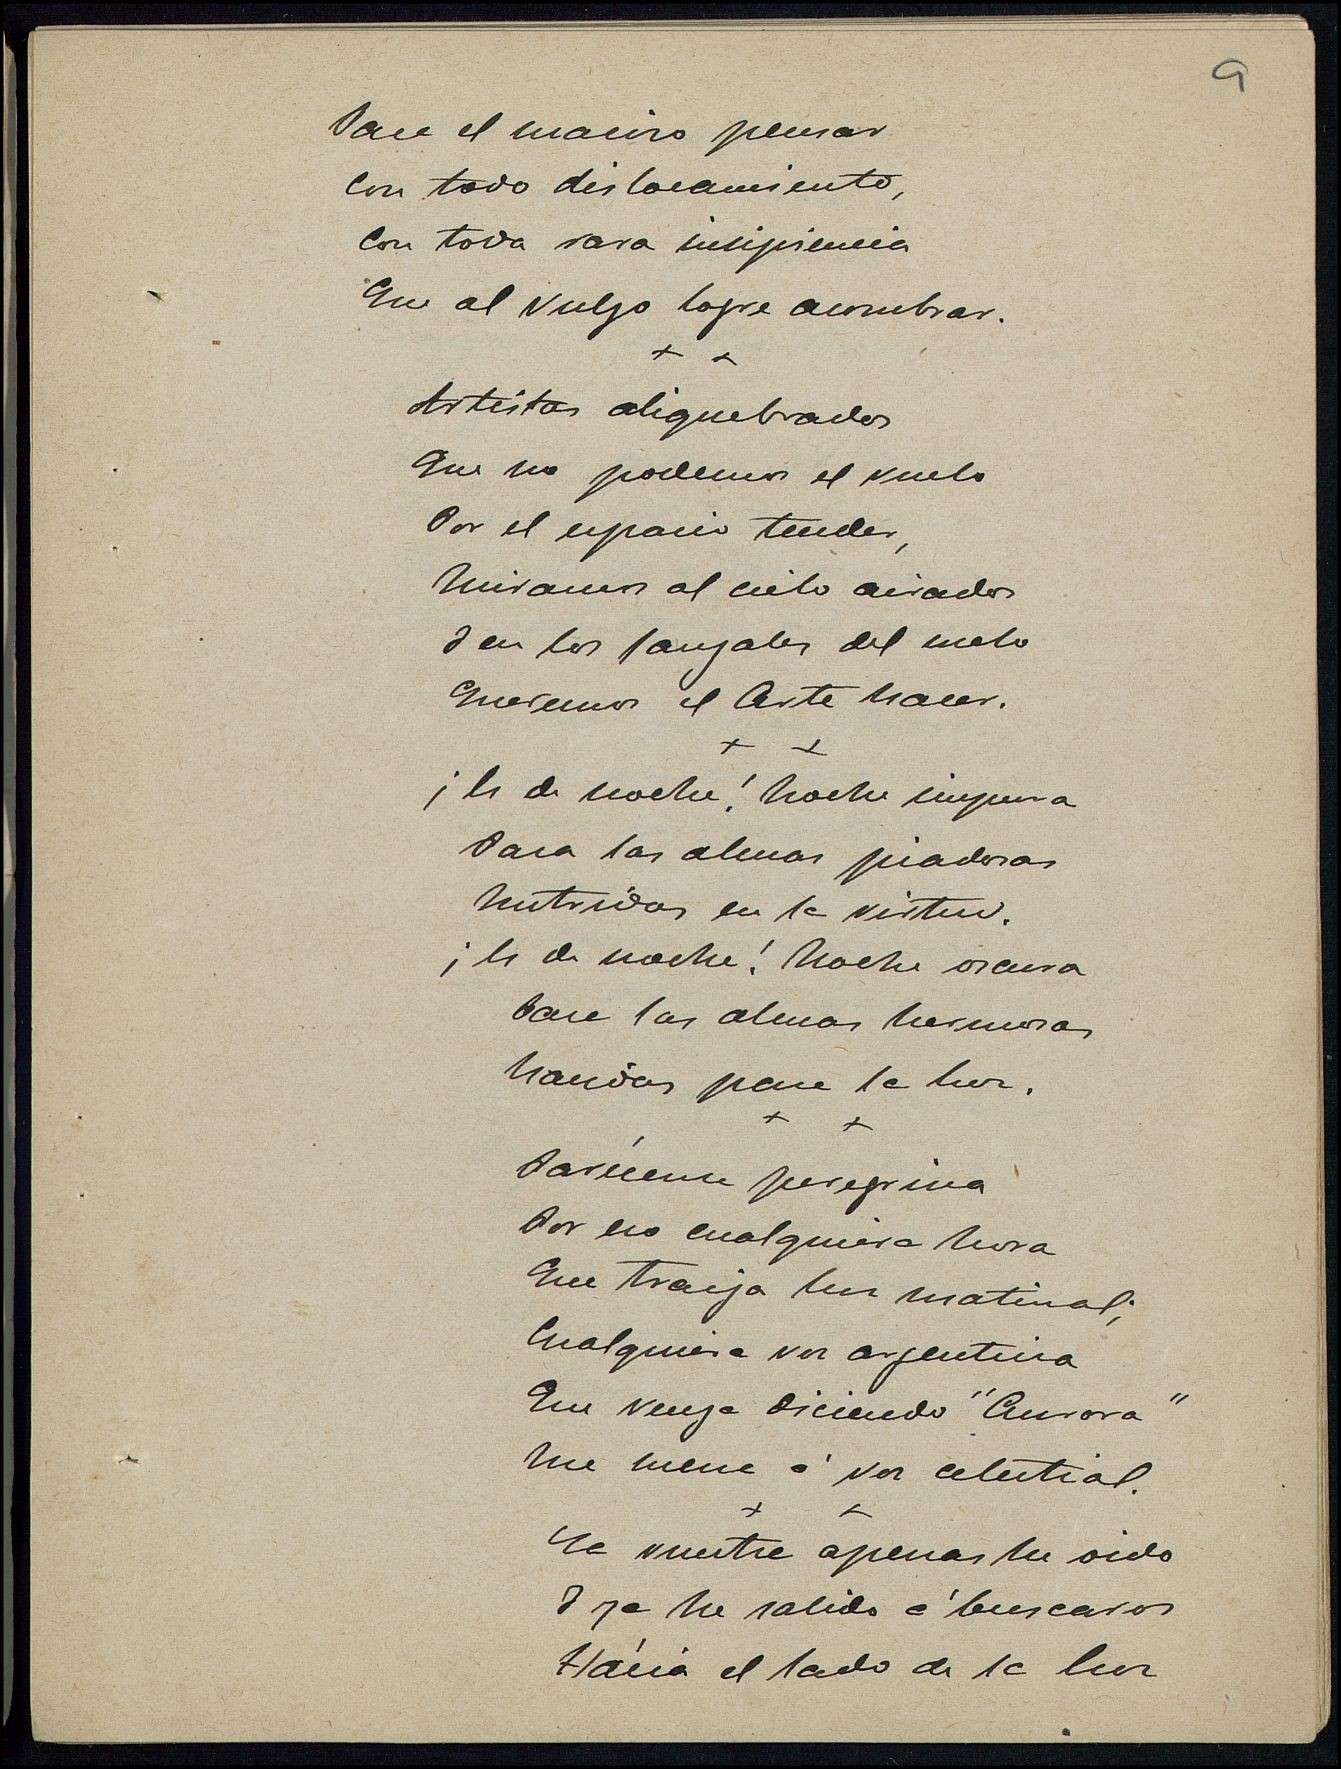 9
Para el macizo pensar
Con todo dislocamiento,
Con toda rara insipiencia
Que al vulgo logre asombrar.
+ +
Artistas aliquebrados
Que no podemos el vuelo
Por el espacio tender,
Miramos al cielo airados
Y en los fangales del suelo
Queremos el Arte hacer.
+ +
¡Es de noche! Noche impura
Para las almas piadosas
Nutridas en la virtud.
¡Es de noche! Noche oscura
Para las almas hermosas
Nacidas para la luz.
+ +
Paréceme peregrina
Por eso cualquiera hora
Que traiga luz matinal;
Cualquiera voz argentina
Que venga diciendo "Aurora"
Me suena á voz celestial.
+ +
La vuestra apenas he oido
Y ya he salido á buscaros
Hácia el lado de la luz